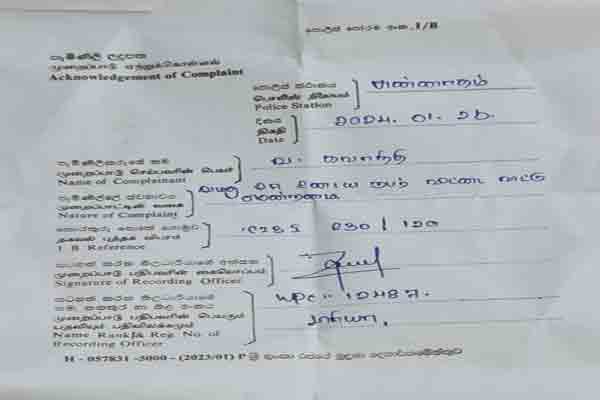 පොලිස් පෝරම අංක. 1/B
පැමිණිලි ලදුපත
முறைப்பாடு ஏற்றுக்கொள்ளல்
Acknowledgement of Complaint
පොලිස් ස්ථානය
பொலிஸ் நிலையம்
Police Station
දිනය
திகதி
Date
2024. 01. 20.
පැමිණිලිකරුගේ නම
முறைப்பாடு செய்பவரின் பெயர்
Name of Complainant
පැමිණිල්ලේ ස්වභාවය
முறைப்பாட்டின் வகை
Nature of Complaint
තොරතුරු පොතේ යොමුව
தகவல் புத்தக விபரம்
I B Reference
230 / 120
සටහන් කරන නිලධාරියාගේ අත්සන
முறைப்பாடு பதிபவரின் கையொப்பம்
Signature of Recording Officer
සටහන් කරන නිලධාරියාගේ
නම, තනතුර හා නිල අංකය
முறைப்பாடு பதிபவரின் பெயரும்
பதவியும் பதிவிலக்கமும்
Name Rank & Reg No. of
Recording Officer
WPC :- 12487.
H - 057831 -5000 - (2023/01) P ශ්‍රී ලංකා රජයේ මුද්‍රණ දෙපාර්තමේන්තුව